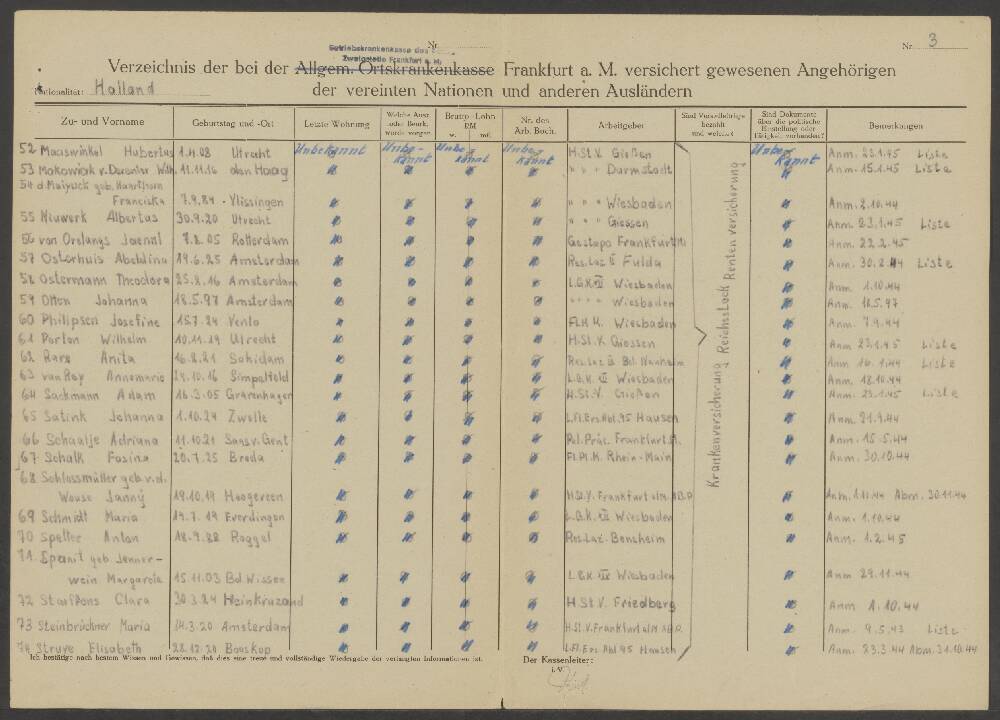 Betriebskrankenkasse des
Zweigstelle Frankfurt a. M.
Nr.
Nr. 3
Verzeichnis der bei der Allgem. Ortskrankenkasse Frankfurt a. M. versichert gewesenen Angehörigen
der vereinten Nationen und anderen Ausländern
Nationalität: Holland
Zu- und Vorname Geburtstag und -Ort Letzte Wohnung Welche Ausz. oder Beurk. wurde vorgen. Brutto-Lohn RM w. mtl. Nr. des Arb. Buch. Arbeitgeber Sind Versich.Beiträge bezahlt und welche? Sind Dokumente über die politische Einstellung oder Tätigkeit vorhanden? Bemerkungen
52 Maaswinkel Hubertus 1.4.08 Utrecht Unbekannt Unbe-kannt Unbekannt Unbekannt H.St.V. Gießen Unbekannt Anm. 23.1.45 Liste
53 Makowiak v. Deventer Wilh. 11.11.16 den Haag " " " Darmstadt Anm. 15.1.45 Liste
54 d. Maiyuck geb. Haarthorn
Franciska 7.9.84 Vlissingen " " " Wiesbaden Anm. 2.10.44
55 Niuwerk Albertus 30.9.20 Utrecht " " " Giessen Anm. 23.1.45 Liste
56 van Orelangs Jaennl 7.8.05 Rotterdam Gestapo Frankfurt/M Anm. 22.2.45
57 Osterhuis Abeldina 19.6.25 Amsterdam Res.Laz. II Fulda Anm. 30.8.44 Liste
58 Ostermann Theodora 25.8.16 Amsterdam L.G.K. XII Wiesbaden Anm. 1.10.44
59 Otten Johanna 18.5.97 Amsterdam " " " " Wiesbaden Anm. 18.5.97
60 Philipsen Josefine 15.7.24 Venlo Wiesbaden Anm. 7.9.44
61 Porton Wilhelm 10.11.19 Utrecht H.St.V. Giessen Anm. 23.1.45 Liste
62 Rare Anita 16.8.21 Schidam Res.Laz. II Bd. Nauheim Anm. 16.1.44 Liste
63 van Rey Annemarie 24.10.16 Simpelfeld L.G.K. XII Wiesbaden Anm. 18.10.44
64 Sackmann Adam 16.3.05 Gravenhagen H.St.V. Gießen Anm. 23.1.45 Liste
65 Satink Johanna 1.10.24 Zwolle L.Fl.Ers.Abt. 95 Hausen Anm. 21.9.44
66 Schaalje Adriana 11.10.21 Sans v. Gent Pol. Präs. Frankfurt Anm. 15.5.44
67 Schalk Fosina 20.7.25 Breda Fl.Pl.K. Rhein-Main Anm. 30.10.44
68 Schlossmüller geb. v. d.
Wouse Janny 19.10.19 Hoogeveen H.St.V. Frankfurt a/M. A.B.P. Anm. 1.11.44 Abm. 30.11.44
69 Schmidt Maria 19.7.19 Everdingen L.G.K. XII Wiesbaden Anm. 1.10.44
70 Spelter Anton 18.9.88 Roggel Res.Laz. Bensheim Anm. 1.2.45
71 Spanit geb. Jenner-
wein Margarete 15.11.03 Bd Wissen L.G.K. XII Wiesbaden Anm 29.11.44
72 Clara 30.3.24 Heinkruzand H.St.V. Friedberg Anm 1.10.44
73 Steinbrückner Maria 14.3.20 Amsterdam H.St.V. Frankfurt a/M A.B.P. Anm. 9.5.43 Liste
74 Struve Elisabeth 28.12.20 Boeskop L.Fl.Ers.Abt 95 Hausen Anm. 23.3.44 Abm. 31.10.44
Krankenversicherung ReichsStock Rentenversicherung
Ich bestätige nach bestem Wissen und Gewissen, daß dies eine treue und vollständige Wiedergabe der verlangten Informationen ist.
Der Kassenleiter:
i. V.